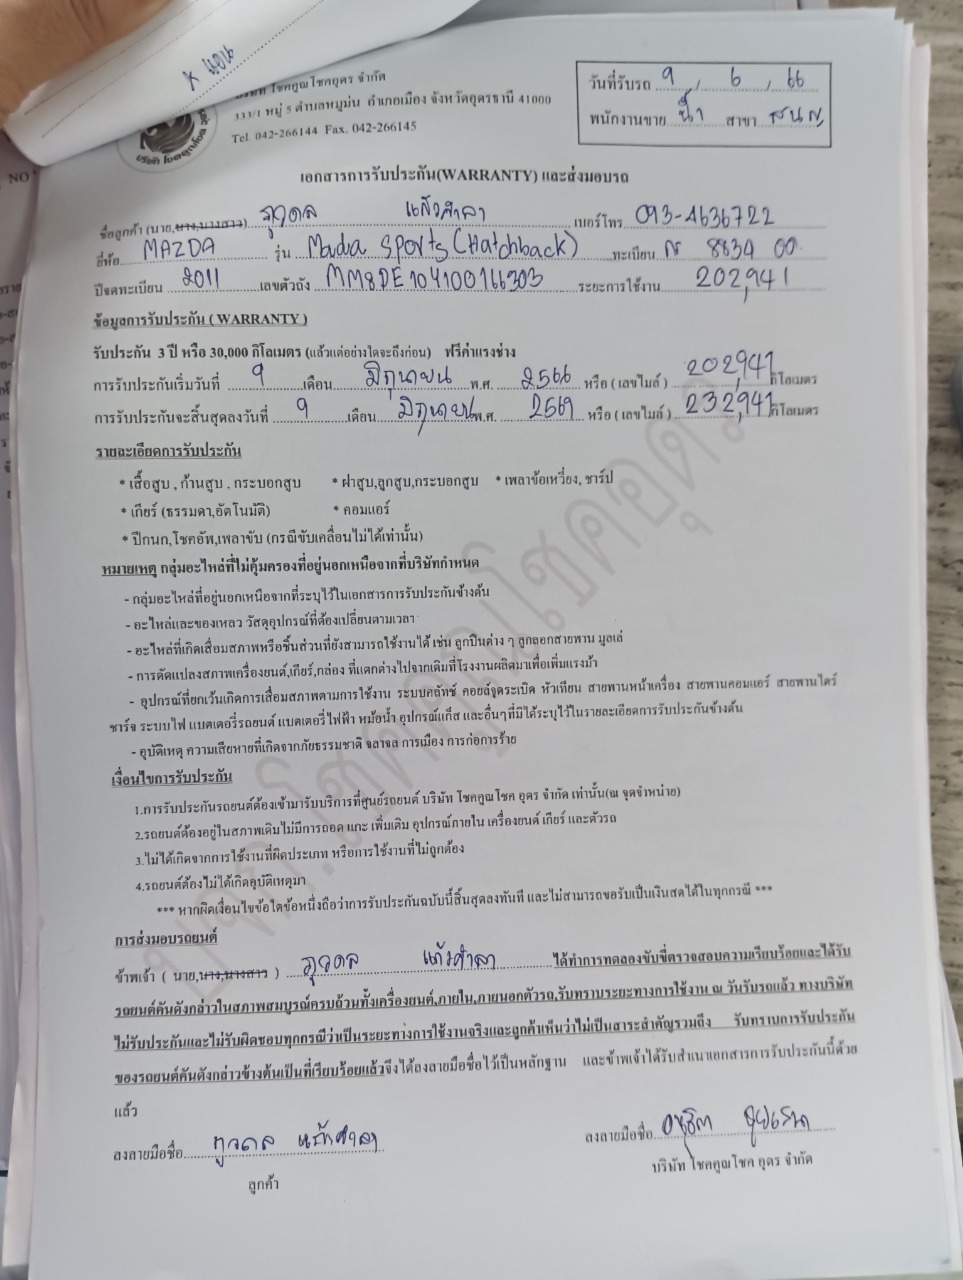 K แอน
บริษัท โชคคูณโชคอุดร จำกัด
333/1 หมู่ 5 ตำบลหมูม่น อำเภอเมือง จังหวัดอุดรธานี 41000
Tel. 042-266144 Fax. 042-266145
วันที่รับรถ 9 / 6 / 66
พนักงานขาย น้ำ สาขา
NO
เอกสารการรับประกัน(WARRANTY) และส่งมอบรถ
ชื่อลูกค้า (นาย,นาง,นางสาว) ภูวดล แก้วศาลา เบอร์โทร 093-4636722
ยี่ห้อ MAZDA รุ่น Mazda Sports (Hatchback) ทะเบียน 8834 00
ปีจดทะเบียน 2011 เลขตัวถัง MM8DE104100166303 ระยะการใช้งาน 202,941
ข้อมูลการรับประกัน ( WARRANTY )
รับประกัน 3 ปี หรือ 30,000 กิโลเมตร (แล้วแต่อย่างใดจะถึงก่อน) ฟรีค่าแรงช่าง
การรับประกันเริ่มวันที่ 9 เดือน มิถุนายน พ.ศ. 2566 หรือ ( เลขไมล์ ) 202,941 กิโลเมตร
การรับประกันจะสิ้นสุดลงวันที่ 9 เดือน มิถุนายน พ.ศ. 2569 หรือ ( เลขไมล์ ) 232,941 กิโลเมตร
รายละเอียดการรับประกัน
* เสื้อสูบ , ก้านสูบ , กระบอกสูบ * ฝาสูบ,ลูกสูบ,กระบอกสูบ * เพลาข้อเหวี่ยง, ชาร์ป
* เกียร์ (ธรรมดา,อัตโนมัติ) * คอมแอร์
* ปีกนก,โชคอัพ,เพลาขับ (กรณีขับเคลื่อนไม่ได้เท่านั้น)
หมายเหตุ กลุ่มอะไหล่ที่ไม่คุ้มครองที่อยู่นอกเหนือจากที่บริษัทกำหนด
- กลุ่มอะไหล่ที่อยู่นอกเหนือจากที่ระบุไว้ในเอกสารการรับประกันข้างต้น
- อะไหล่และของเหลว วัสดุอุปกรณ์ที่ต้องเปลี่ยนตามเวลา
- อะไหล่ที่เกิดเสื่อมสภาพหรือชิ้นส่วนที่ยังสามารถใช้งานได้ เช่น ลูกปืนต่าง ๆ ลูกลอกสายพาน มูลเล่
- การดัดแปลงสภาพเครื่องยนต์,เกียร์,กล่อง ที่แตกต่างไปจากเดิมที่โรงงานผลิตมาเพื่อเพิ่มแรงม้า
- อุปกรณ์ที่ยกเว้นเกิดการเสื่อมสภาพตามการใช้งาน ระบบคลัทช์ คอยล์จุดระเบิด หัวเทียน สายพานหน้าเครื่อง สายพานคอมแอร์ สายพานไดร์
ชาร์จ ระบบไฟ แบตเตอรี่รถยนต์ แบตเตอรี่ไฟฟ้า หม้อน้ำ อุปกรณ์แก็ส และอื่นๆที่มิได้ระบุไว้ในรายละเอียดการรับประกันข้างต้น
- อุบัติเหตุ ความเสียหายที่เกิดจากภัยธรรมชาติ จลาจล การเมือง การก่อการร้าย
เงื่อนไขการรับประกัน
1.การรับประกันรถยนต์ต้องเข้ามารับบริการที่ศูนย์รถยนต์ บริษัท โชคคูณโชค อุดร จำกัด เท่านั้น(ณ จุดจำหน่าย)
2.รถยนต์ต้องอยู่ในสภาพเดิมไม่มีการถอด แกะ เพิ่มเติม อุปกรณ์ภายใน เครื่องยนต์ เกียร์ และตัวรถ
3.ไม่ได้เกิดจากการใช้งานที่ผิดประเภท หรือการใช้งานที่ไม่ถูกต้อง
4.รถยนต์ต้องไม่ได้เกิดอุบัติเหตุมา
*** หากผิดเงื่อนไขข้อใดข้อหนึ่งถือว่าการรับประกันฉบับนี้สิ้นสุดลงทันที และไม่สามารถขอรับเป็นเงินสดได้ในทุกกรณี ***
การส่งมอบรถยนต์
ข้าพเจ้า ( นาย,นาง,นางสาว ) ภูวดล แก้วศาลา ได้ทำการทดลองขับขี่ตรวจสอบความเรียบร้อยและได้รับ
รถยนต์คันดังกล่าวในสภาพสมบูรณ์ครบถ้วนทั้งเครื่องยนต์,ภายใน,ภายนอกตัวรถ,รับทราบระยะทางการใช้งาน ณ วันรับรถแล้ว ทางบริษัท
ไม่รับประกันและไม่รับผิดชอบทุกกรณีว่าเป็นระยะทางการใช้งานจริงและลูกค้าเห็นว่าไม่เป็นสาระสำคัญรวมถึง รับทราบการรับประกัน
ของรถยนต์คันดังกล่าวข้างต้นเป็นที่เรียบร้อยแล้วจึงได้ลงลายมือชื่อไว้เป็นหลักฐาน และข้าพเจ้าได้รับสำเนาเอกสารการรับประกันนี้ด้วย
แล้ว
ลงลายมือชื่อ ภูวดล แก้วศาลา
ลูกค้า
ลงลายมือชื่อ
บริษัท โชคคูณโชค อุดร จำกัด
บจก.โชคคูณโชคอุดร